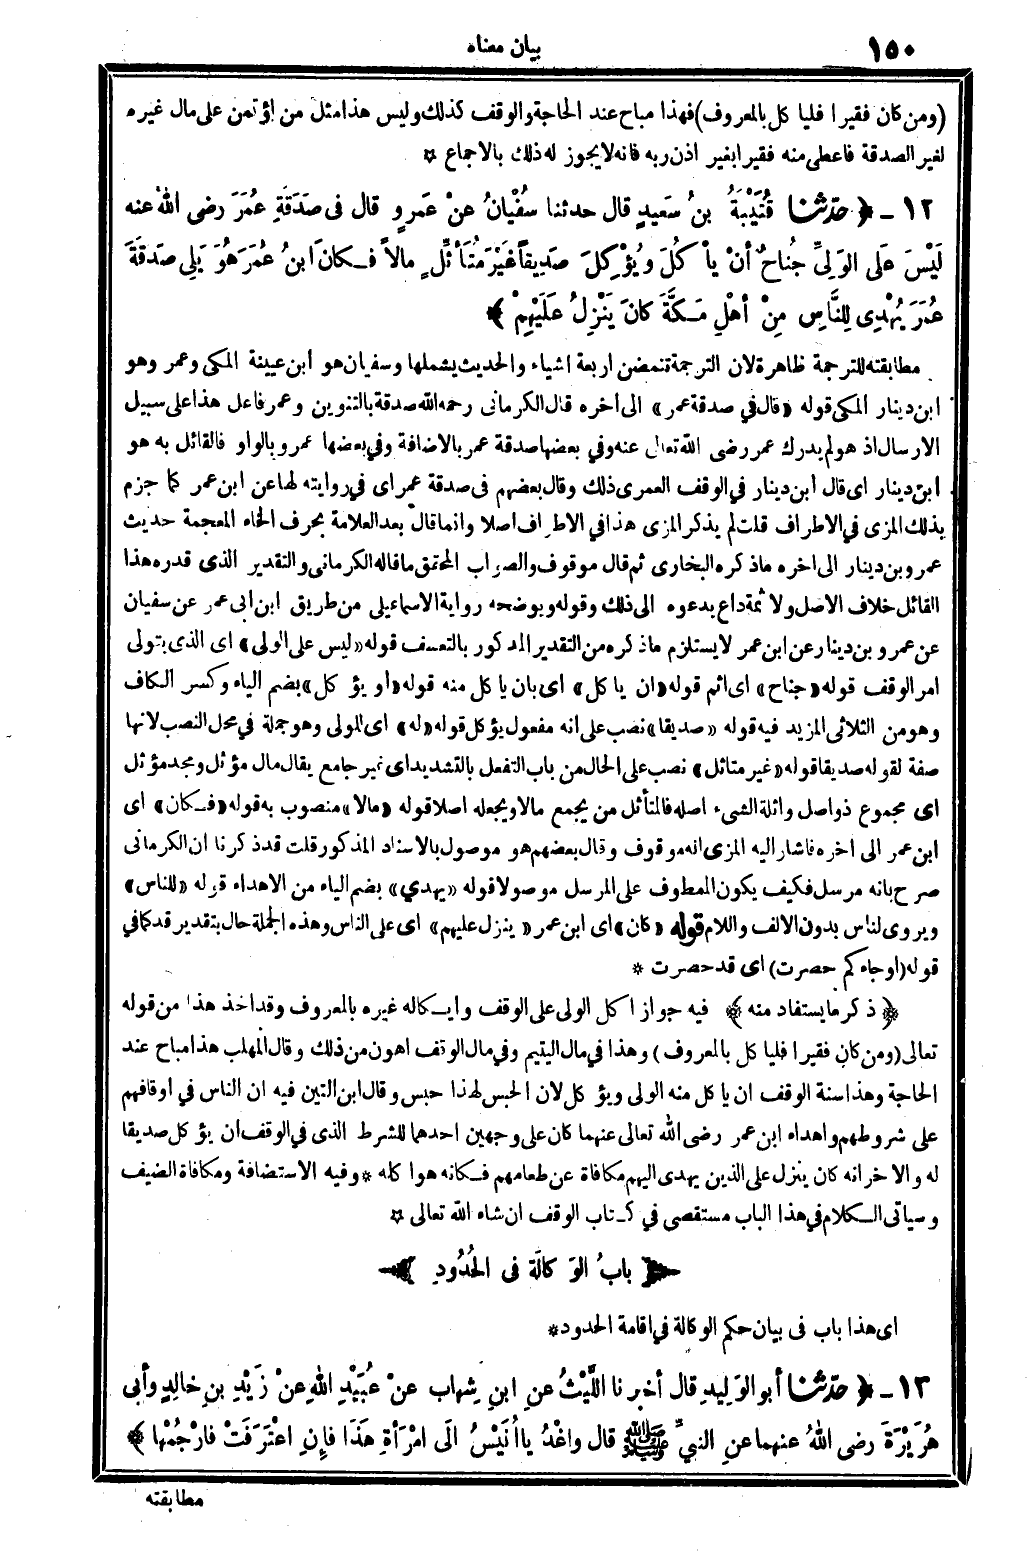 ١٥٠ بيان معناه
(ومن كان فقيرا فليا كل بالمعروف) فهذا مباح عند الحاجة والوقف كذلك وليس هذا مثل من اؤتمن على مال غيره
لغير الصدقة فاعطى منه فقيرا بغير اذن ربه فانه لا يجوز له ذلك بالاجماع *
١٢ - ﴿ حدثنا قُتَيْبَةُ بنُ سَعِيدٍ قال حدثنا سفْيانُ عنْ عَمرٍو قال فى صَدَقَةِ عُمَرَ رضى اللهُ عنه
لَيْسَ عَلَى الوَلِىِّ جُناحٌ أنْ يأْ كُلَ ويُؤْكِلَ صَدِيقاً غَيْرَ مُتَأثِّلٍ مالاً فكانَ ابنُ عُمَرَ هُوَ يَلِى صَدقَةَ
عُمَرَ يُهْدِى لِلنَّاسِ مِنْ أهْلِ مَكَّةَ كانَ يَنْزِلُ عَلَيْهِمْ ﴾
مطابقته للترجمة ظاهرة لان الترجمة تتضمن اربعة اشياء والحديث يشملها وسفيان هو ابن عيينة المكى وعمر وهو
ابن دينار المكى قوله «قال في صدقة عمر» الى آخره قال الكرمانى رحمه الله صدقة بالتنوين وعمر فاعل هذا على سبيل
الارسال اذ هو لم يدرك عمر رضى الله تعالى عنه وفي بعضها صدقة عمر بالاضافة وفي بعضها عمرو بالواو فالقائل به هو
ابن دينار اى قال ابن دينار في الوقف العمرى ذلك وقال بعضهم فى صدقة عمر اى في روايته لها عن ابن عمر كما جزم
بذلك المزى في الاطراف قلت لم يذكر المزى هذا في الاطراف اصلا وانما قال بعد العلامة بحرف الخاء المعجمة حديث
عمرو بن دينار الى اخره ماذكره البخارى ثم قال موقوف والصواب المحقق ما قاله الكرمانى والتقدير الذى قدره هذا
القائل خلاف الاصل ولا ثمة داع يدعوه الى ذلك وقوله ويوضحه رواية الاسماعيلى من طريق ابن ابى عمر عن سفيان
عن عمرو بن دينار عن ابن عمر لا يستلزم ماذكره من التقدير المذكور بالتعسف قوله «ليس على الولى» اى الذى يتولى
امر الوقف قوله «جناح» اى اثم قوله «ان ياكل» اى بان ياكل منه قوله «او يؤكل» بضم الياء وكسر الكاف
وهو من الثلاثى المزيد فيه قوله «صديقا» نصب على انه مفعول يؤكل قوله «له» اى للولى وهو جملة في محل النصب لانها
صفة لقوله صديقا قوله «غير متاثل» نصب على الحال من باب التفعل بالتشديد اى غير جامع يقال مال مؤثل ومجد مؤثل
اى مجموع ذو اصل واثلة الشىء اصله فالمتأثل من يجمع مالا ويجعله اصلا قوله «مالا» منصوب به قوله «فكان» اى
ابن عمر الى اخره فاشار اليه المزى انه موقوف وقال بعضهم هو موصول بالاسناد المذكور قلت قد ذكرنا ان الكرمانى
صرح بانه مرسل فكيف يكون المعطوف على المرسل موصولا قوله «يهدي» بضم الياء من الاهداء قوله «للناس»
ويروى لناس بدون الالف واللام قوله «كان» اى ابن عمر «ينزل عليهم» اى على الناس وهذه الجملة حال بتقدير قد كما في
قوله (اوجاءكم حصرت) اى قد حصرت *
﴿ ذكر ما يستفاد منه ﴾ فيه جواز اكل الولى على الوقف وايكاله غيره بالمعروف وقد اخذ هذا من قوله
تعالى (ومن كان فقيرا فليا كل بالمعروف) وهذا في مال اليتيم وفي مال الوقف اهون من ذلك وقال المهلب هذا مباح عند
الحاجة وهذا سنة الوقف ان ياكل منه الولى ويؤكل لان الحبس لهذا حبس وقال ابن التين فيه ان الناس في اوقافهم
على شروطهم واهداء ابن عمر رضى الله تعالى عنهما كان على وجهين احدهما للشرط الذى في الوقف ان يؤكل صديقا
له والاخر انه كان ينزل على الذين يهدى اليهم مكافاة عن طعامهم فكانه هو اكله * وفيه الاستضافة ومكافاة الضيف
وسياتى الكلام في هذا الباب مستقصى في كتاب الوقف ان شاء الله تعالى *
﴿ بابُ الوَكالَة فى الحُدُودِ ﴾
اى هذا باب فى بيان حكم الوكالة في اقامة الحدود *
١٣ - ﴿ حدثنا أبو الوَلِيدِ قال أخبرنا اللَّيْثُ عنِ ابنِ شِهابٍ عنْ عُبَيْدِ اللهِ عنْ زَيْدِ بنِ خالِدٍ وأبى
هُرَيْرَةَ رضى اللهُ عنهما عنِ النبىِّ ﷺ قال واغْدُ يا أُنَيْسُ الَى امْرَأةِ هَذَا فإِنِ اعْتَرَفَتْ فارْجُمْها ﴾
مطابقته